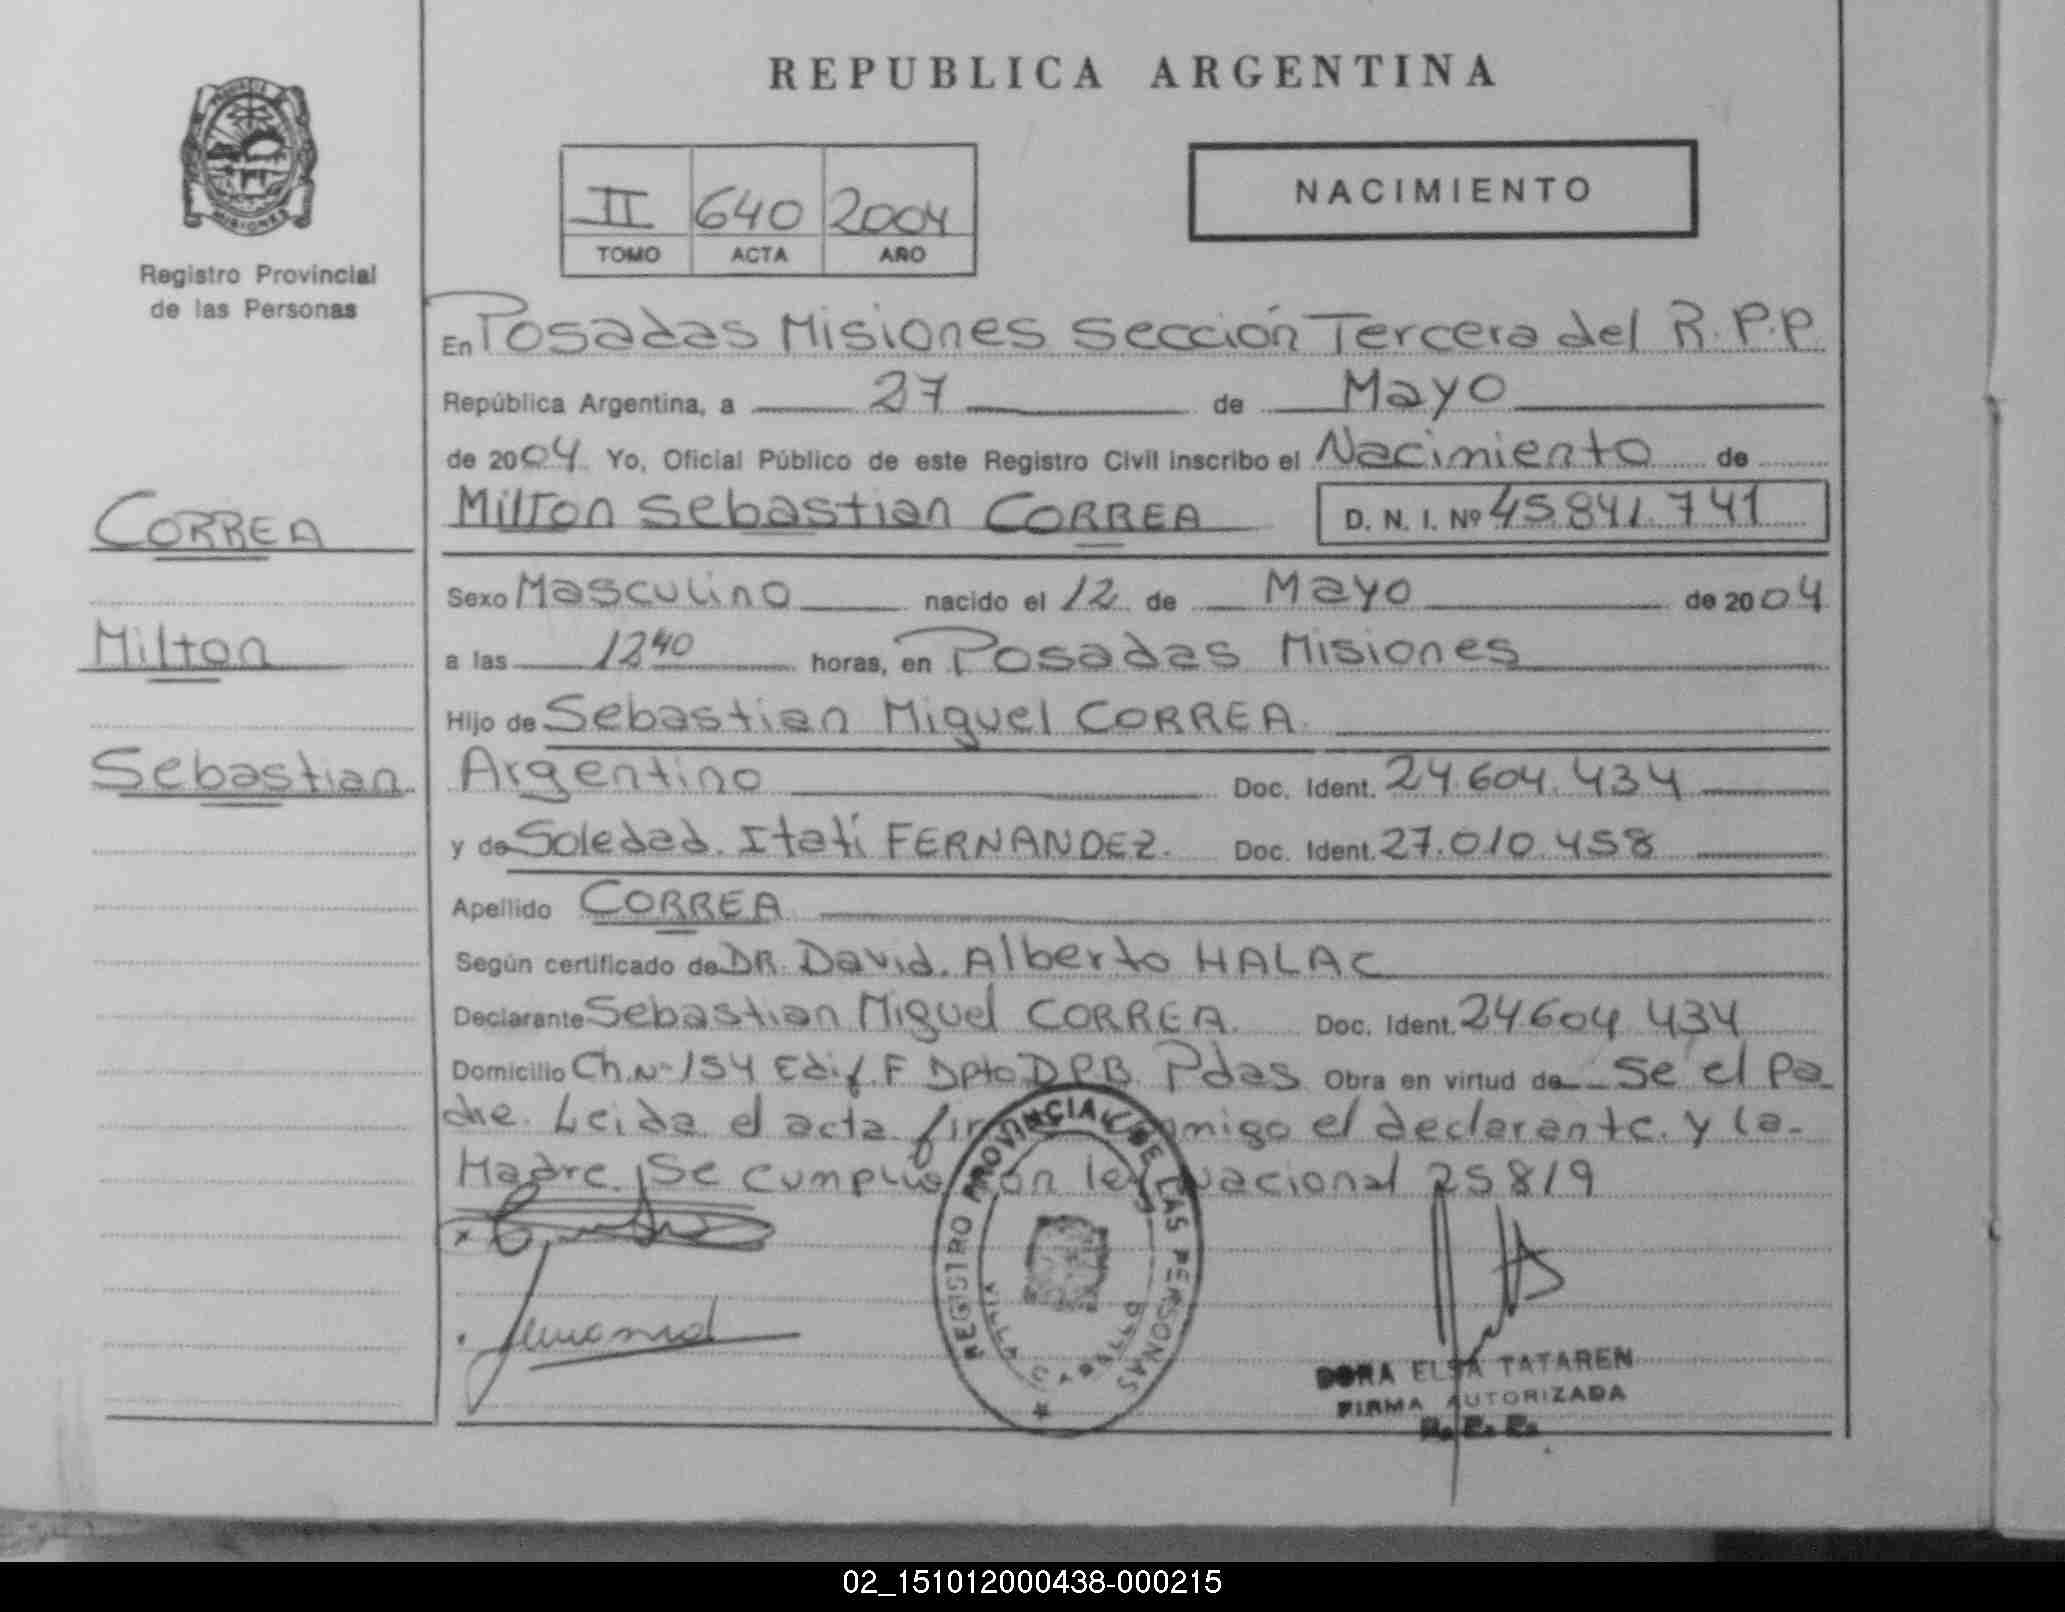 REPUBLICA ARGENTINA
PROVINCIA DE MISIONES
Registro Provincial
de las Personas
II 640 2004
TOMO ACTA AÑO
NACIMIENTO
En Posadas Misiones Sección Tercera del R.P.P.
República Argentina, a 27 de Mayo
de 2004 Yo, Oficial Público de este Registro Civil inscribo el Nacimiento de
Milton Sebastian CORREA D. N. I. Nº 45.841.741
CORREA
Milton
Sebastian
Sexo Masculino nacido el 12 de Mayo de 2004
a las 12 40 horas, en Posadas Misiones
Hijo de Sebastian Miguel CORREA
Argentino Doc. Ident. 24.604.434
y de Soledad Itatí FERNANDEZ. Doc. Ident. 27.010.458
Apellido CORREA
Según certificado de DR. David Alberto HALAC
Declarante Sebastian Miguel CORREA. Doc. Ident. 24604434
Domicilio Ch. Nº 154 Edif. F Dpto DPB Pdas Obra en virtud de Se el Pa
dre. Leida el acta conmigo el declarante y la
Madre. Se cumplio con ley nacional 25819
REGISTRO PROVINCIAL DE LAS PERSONAS
DORA ELSA TATAREN
FIRMA AUTORIZADA
02_151012000438-000215